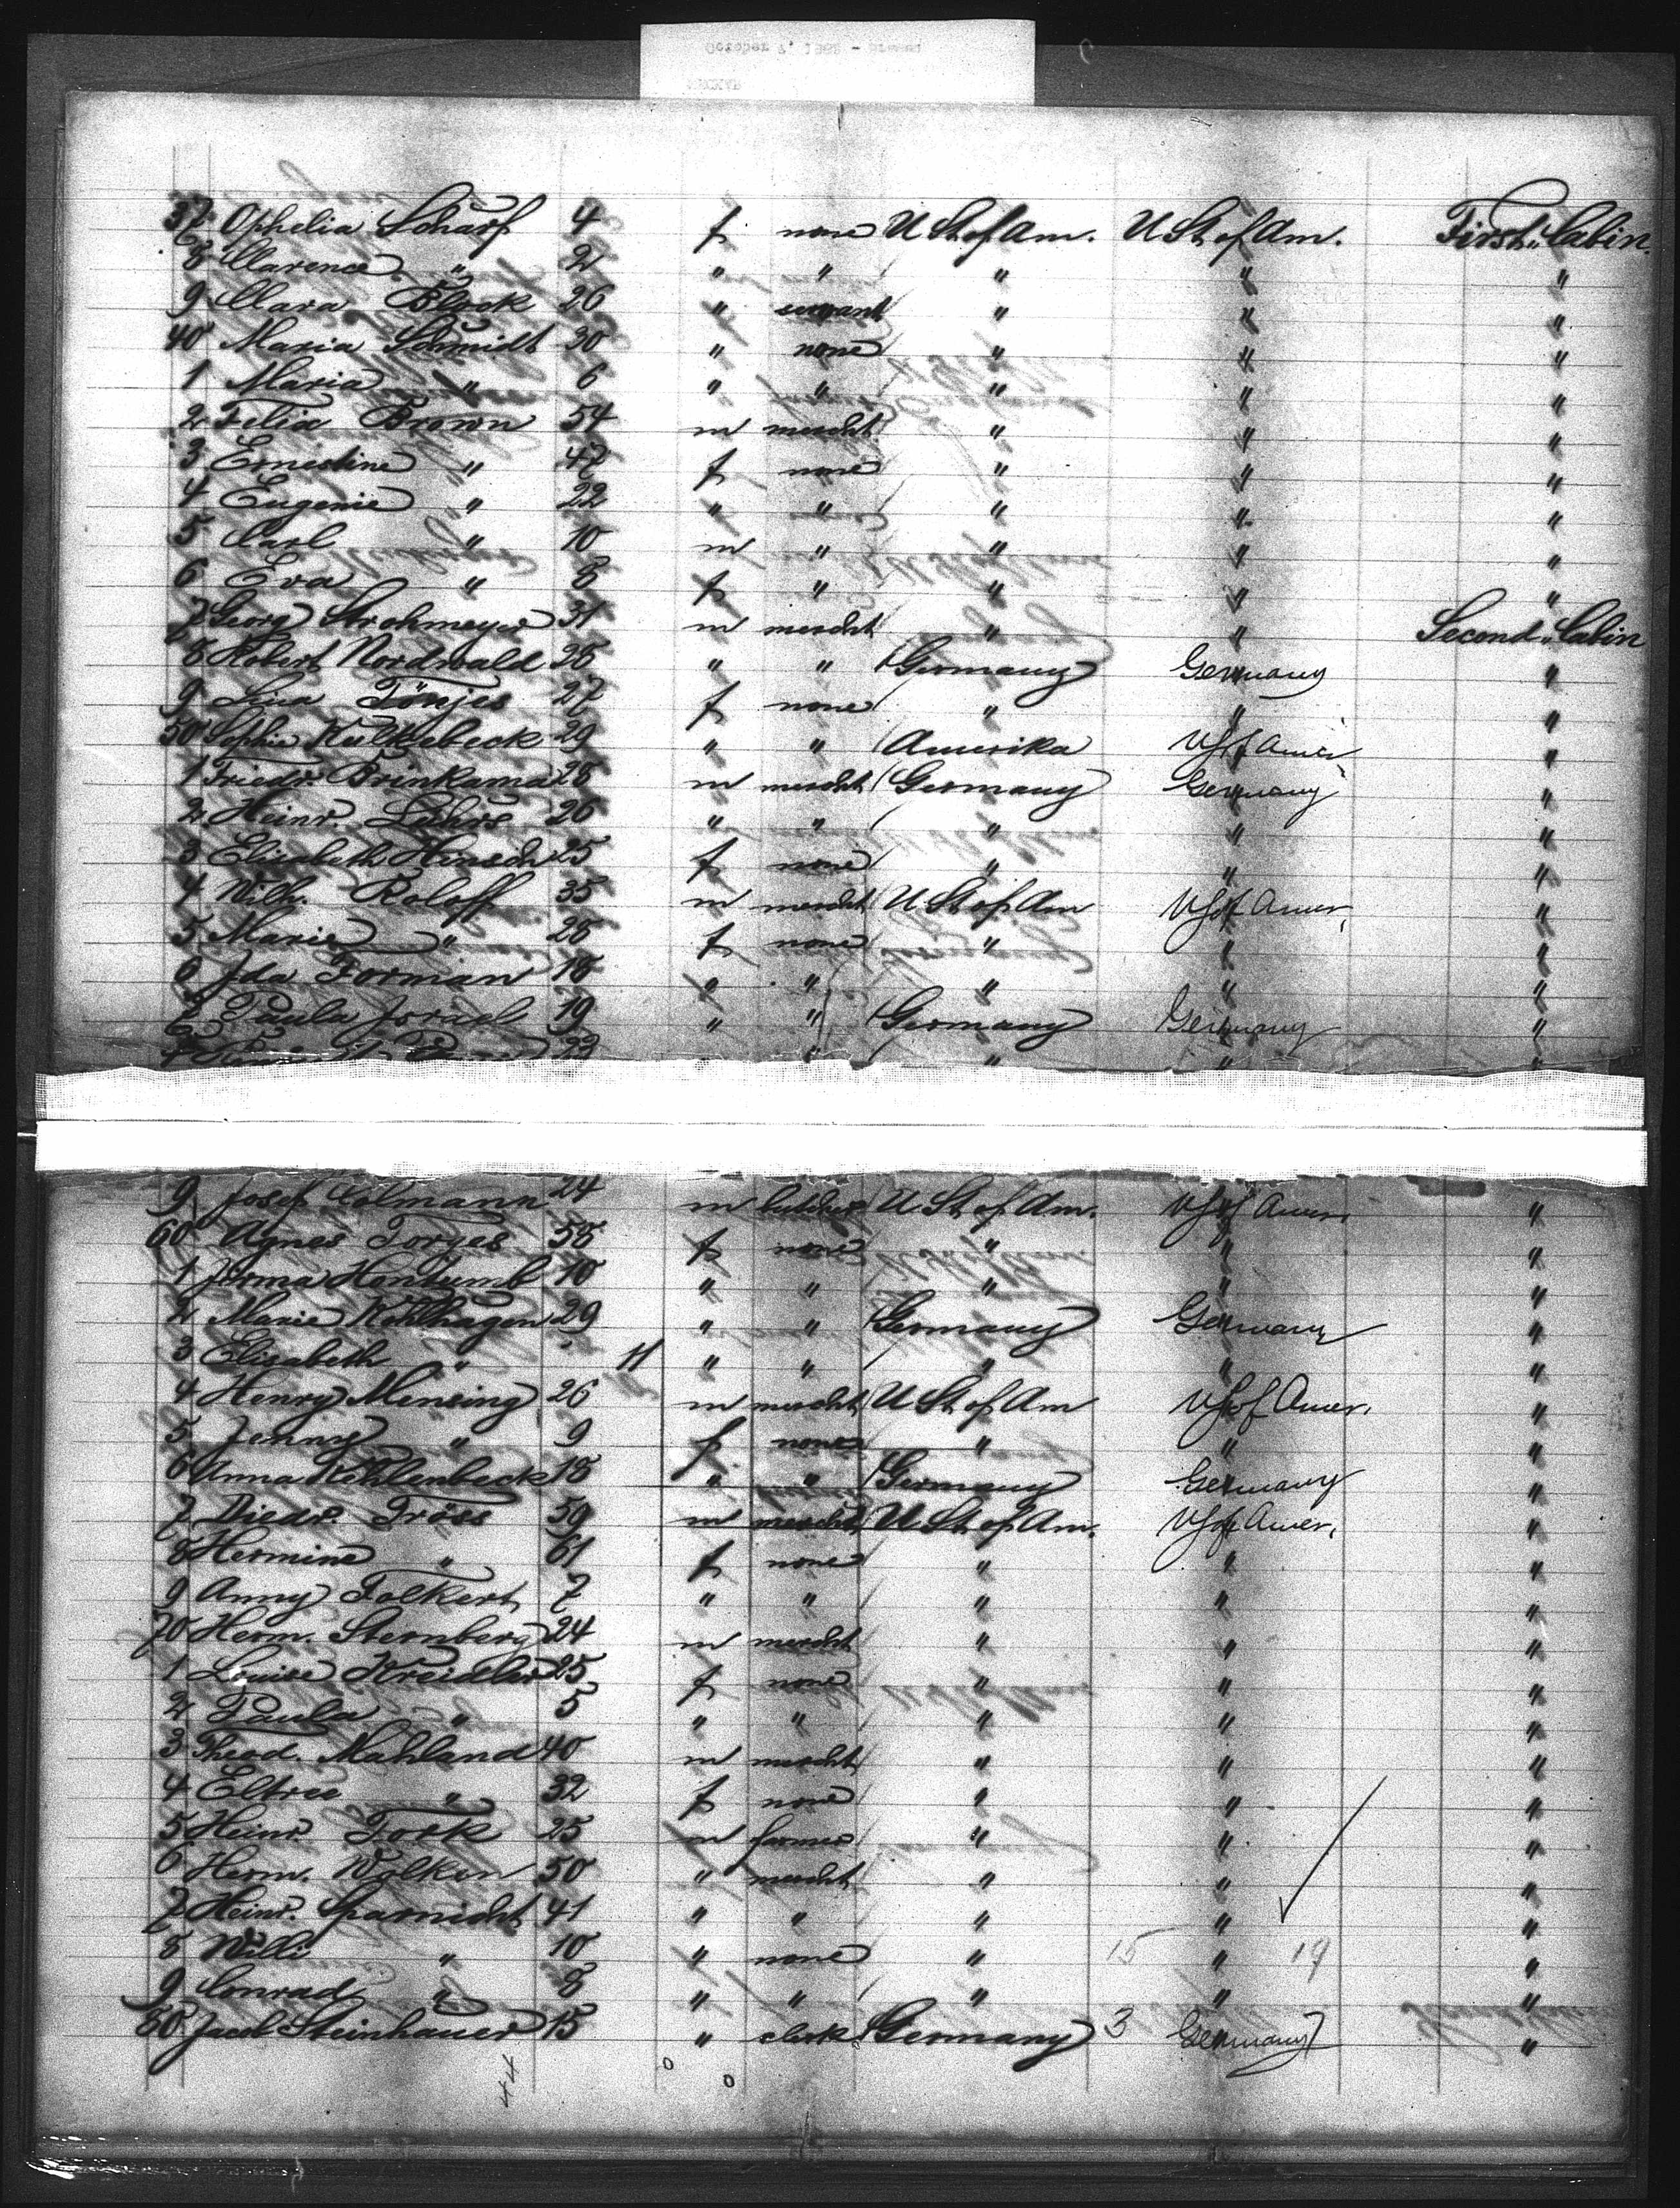 37 Ophelia Scharf 4 f none U St of Am. U St of Am. First Cabin
8 Clarence " 2 " " " " "
9 Clara Block 26 " servant " " "
40 Maria Schmidt 30 " none " " "
1 Maria " 6 " " " " "
2 Felix Brown 54 m mercht " " "
3 Ernestine " 47 f none " " "
4 Eugenie " 22 " " " " "
5 Carl " 10 m " " " "
6 Eva " 8 f " " " "
7 Georg Strohmeyer 31 m mercht " " Second Cabin
8 Robert Nordwald 28 " " Germany Germany "
9 Lina Tönjes 27 f none " " "
50 Sophie 29 " " Amerika US of Amer. "
1 Friedr. Brinkama 28 m mercht Germany Germany "
2 Heinr. Lührs 26 " " " " "
3 Elisabeth Hensch 25 f none " " "
4 Wilh. Roloff 35 m mercht U St of Am US of Amer. "
5 Marie " 28 f none " " "
6 Ida Forman 18 " " " " "
7 Paula Israel 19 " " Germany Germany "
" " " "
9 Josef Colmann 24 m butcher U St of Am. US of Amer. "
60 Agnes Torges 58 f none " " "
1 Irma 10 " " " " "
2 Marie Kohlhagen 29 " " Germany Germany "
3 Elisabeth " 11 " " " " "
4 Henry Mensing 26 m mercht U St of Am US of Amer. "
5 Jenny " 9 f none " " "
6 Anna Kohlenbeck 18 " " Germany Germany "
7 Diedr. Tröss 59 m mercht U St of Am. US of Amer. "
8 Hermine " 61 f none " " "
9 Anny Folkert 7 " " " " "
70 Herm. Sternberg 24 m mercht " " "
1 Louise Kreidler 25 f none " " "
2 Paula " 5 " " " " "
3 Theod. Mahland 40 m mercht " " "
4 " 32 f none " " "
5 Heinr. Tork 25 m farmer " " "
6 Herm. Wolken 50 " mercht " " "
7 Heinr. Sparnicht 41 " " " " "
8 Willi " 10 " none " 15 " 19 "
9 Conrad " 8 " " " " "
80 Jacob Steinhauer 15 " clerk Germany 3 Germany "
44 0 0